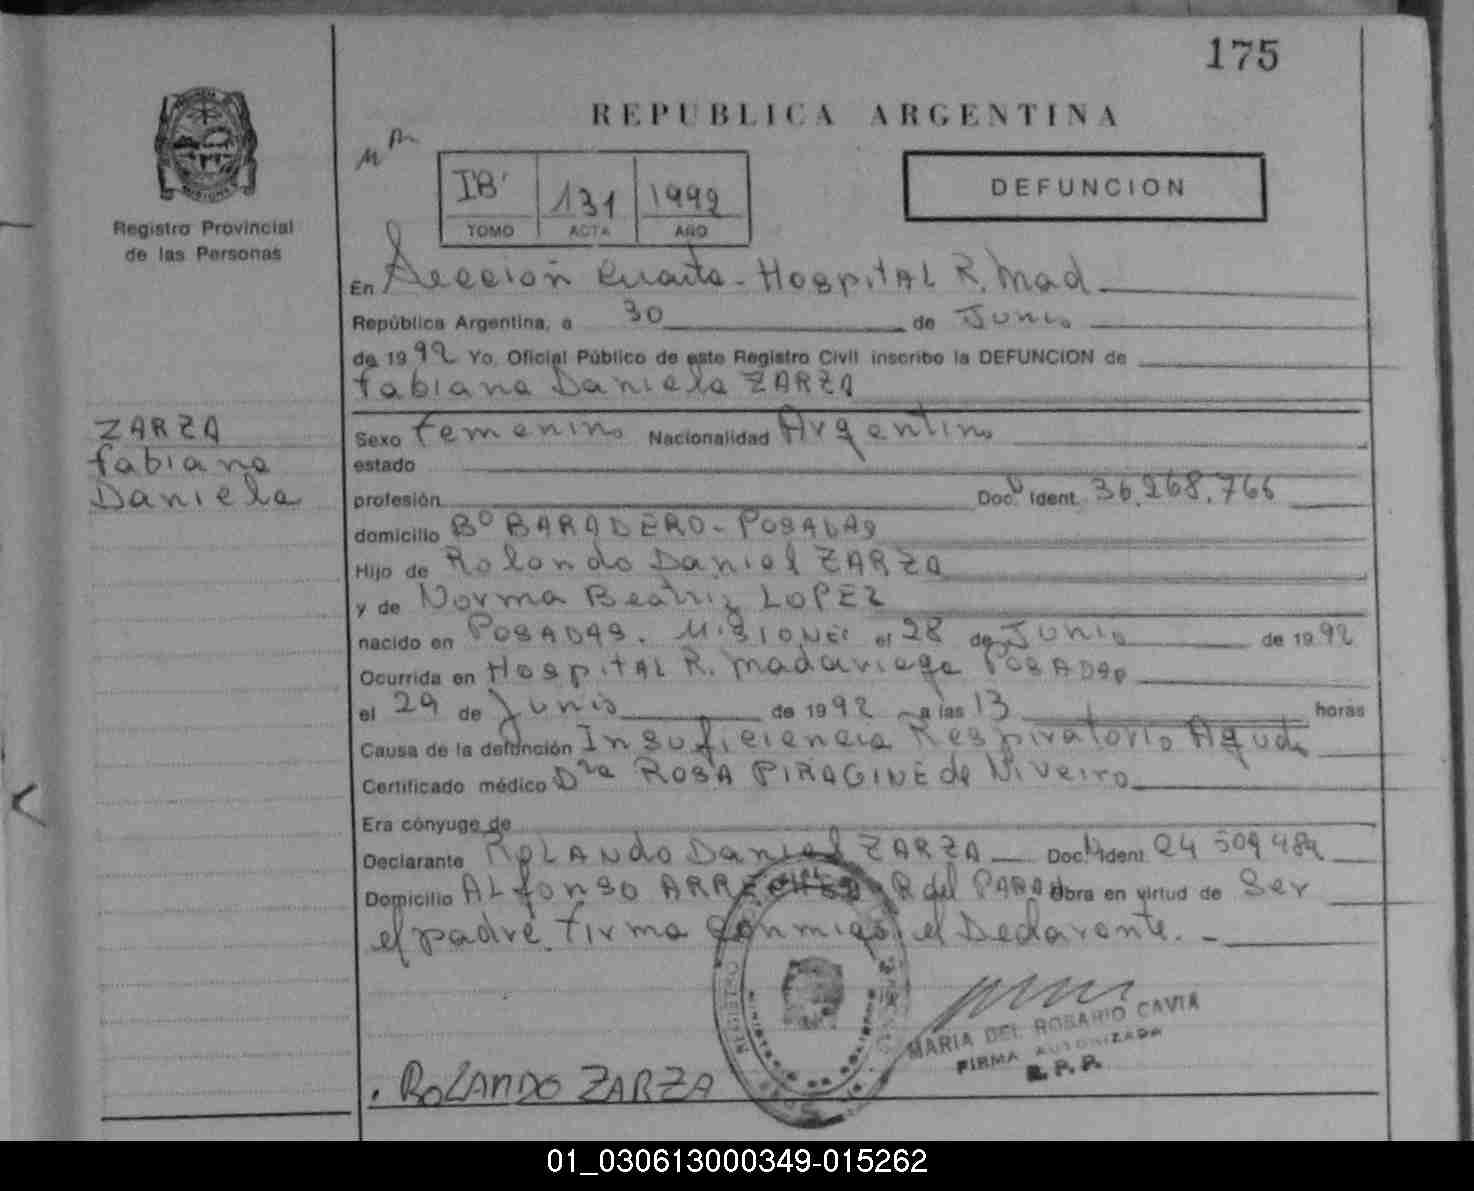 175
REPUBLICA ARGENTINA
DEFUNCION
131 1992
TOMO ACTA AÑO
Registro Provincial
de las Personas
En Sección Cuarta - HospitAL R. Mad
República Argentina, a 30 de Junio
de 1992 Yo, Oficial Público de este Registro Civil inscribo la DEFUNCION de
Fabiana Daniela ZARZA
ZARZA
Fabiana
Daniela
Sexo Femenino Nacionalidad Argentino
estado
profesión Doc. Ident. 36.268.766
domicilio Bº BARADERO - POSADAS
Hijo de Rolando Daniel ZARZA
y de Norma Beatriz LOPEZ
nacido en POSADAS. MISIONES el 28 de Junio de 1992
Ocurrida en HospitAL R. Madariaga POSADAS
el 29 de Junio de 1992 a las 13 horas
Causa de la defunción Insuficiencia Respiratorio Aguda
Certificado médico Dra ROSA PIRAGINE de Niveiro
Era cónyuge de
Declarante ROLANDO Daniel ZARZA Doc. Ident. 24 509 484
Domicilio ALfonso R. del PARAN Obra en virtud de Ser
el padre. Firma conmigo el Declarante. -
REGISTRO
MARIA DEL ROSARIO CAVIA
FIRMA AUTORIZADA
R. P. P.
. ROLANDO ZARZA
01_030613000349-015262